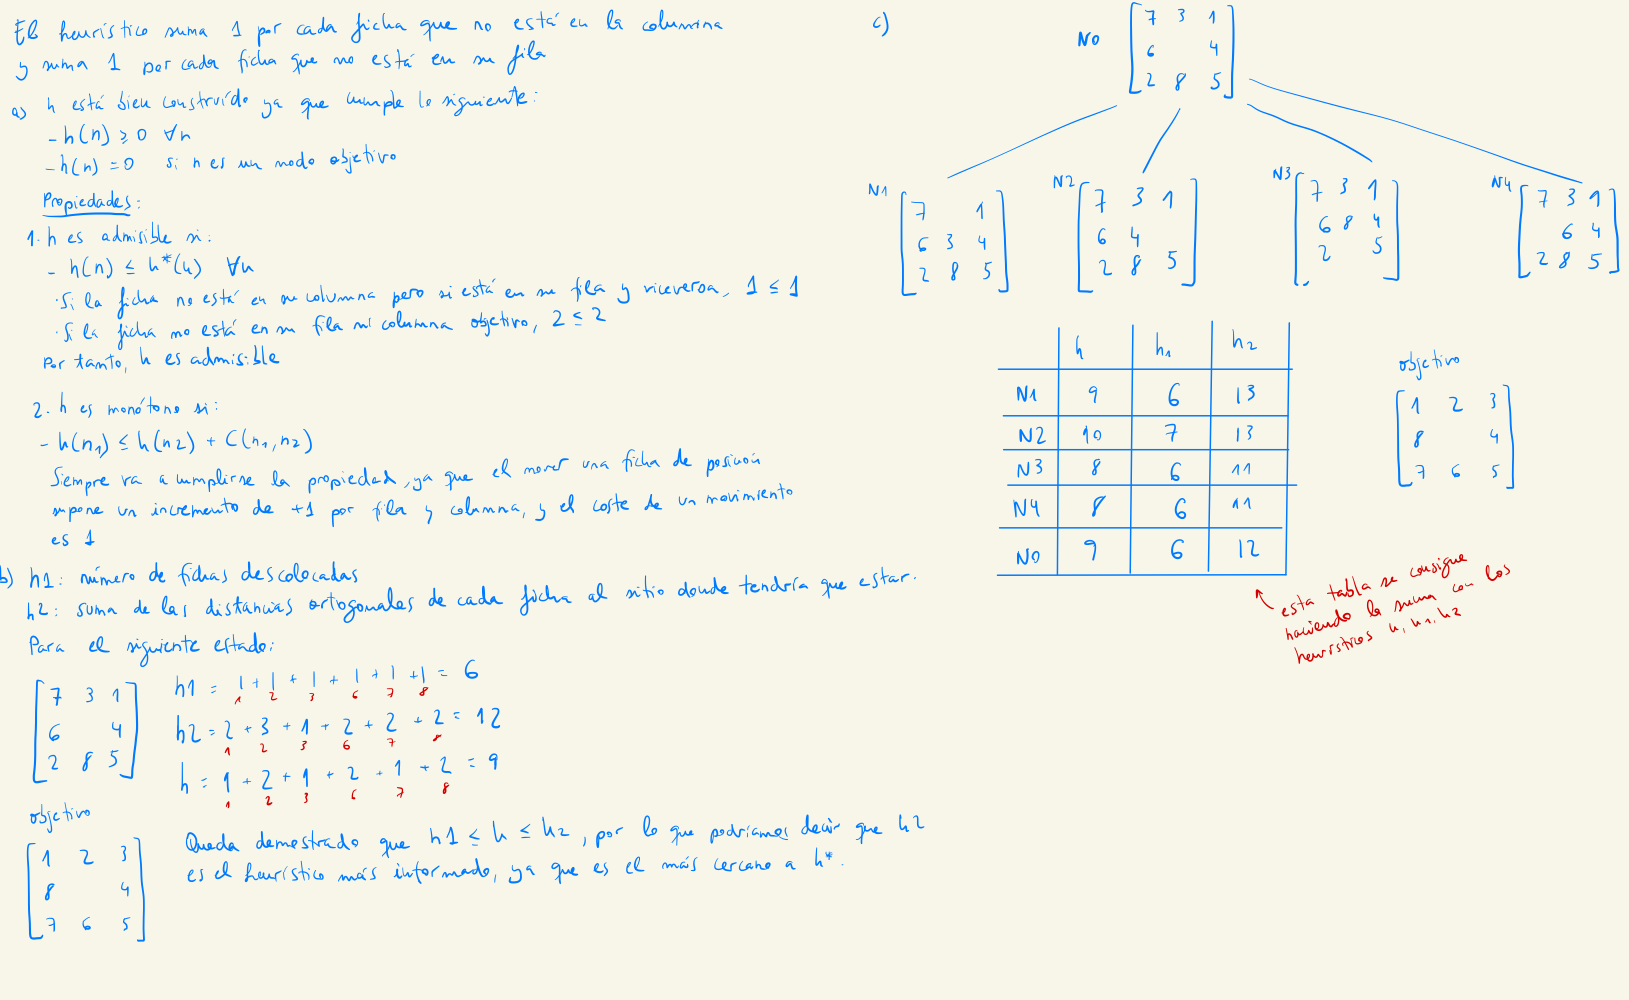 El heurístico suma 1 por cada ficha que no está en la columna
y suma 1 por cada ficha que no está en su fila
a) h está bien construído ya que cumple lo siguiente:
- h(n) ≥ 0 ∀n
- h(n) = 0 si n es un nodo objetivo
Propiedades:
1. h es admisible si:
- h(n) ≤ h*(n) ∀n
· Si la ficha no está en su columna pero si está en su fila y viceversa, 1 ≤ 1
· Si la ficha no está en su fila ni columna objetivo, 2 ≤ 2
Por tanto, h es admisible
2. h es monótono si:
- h(n1) ≤ h(n2) + C(n1, n2)
Siempre va a cumplirse la propiedad, ya que el mover una ficha de posición
supone un incremento de +1 por fila y columna, y el coste de un movimiento
es 1
b) h1: número de fichas descolocadas
h2: suma de las distancias ortogonales de cada ficha al sitio donde tendría que estar.
Para el siguiente estado:
7 3 1
6 4
2 8 5
h1 = 1 + 1 + 1 + 1 + 1 + 1 = 6
1 2 3 6 7 8
h2 = 2 + 3 + 1 + 2 + 2 + 2 = 12
1 2 3 6 7 8
h = 1 + 2 + 1 + 2 + 1 + 2 = 9
1 2 3 6 7 8
objetivo
1 2 3
8 4
7 6 5
Queda demostrado que h1 ≤ h ≤ h2, por lo que podríamos decir que h2
es el heurístico más informado, ya que es el más cercano a h*.
c)
N0
7 3 1
6 4
2 8 5
N1
7 1
6 3 4
2 8 5
N2
7 3 1
6 4
2 8 5
N3
7 3 1
6 8 4
2 5
N4
7 3 1
6 4
2 8 5
h h1 h2
N1 9 6 13
N2 10 7 13
N3 8 6 11
N4 8 6 11
N0 9 6 12
objetivo
1 2 3
8 4
7 6 5
esta tabla se consigue
haciendo la suma con los
heurísticos h, h1, h2